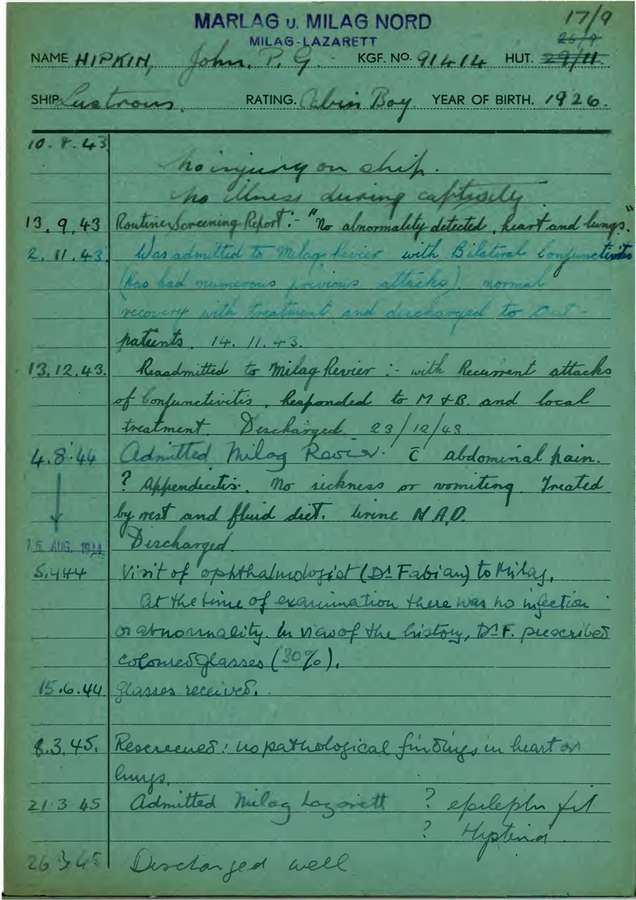 MARLAG U. MILAG NORD
MILAG-LAZARETT
17/9
26/9
29/11.
NAME HIPKIN, John. P. G. KGF. NO. 91414 HUT.
SHIP. Lustrous. RATING. Cabin Boy YEAR OF BIRTH. 1926.
10. 8. 43 No injury on ship.
No illness during captivity.
13. 9. 43 Routine Screening Report :- "No abnormality detected, heart and lungs."
2. 11. 43. Was admitted to Milag Revier with Bilateral Conjunctivitis
(has had numerous previous attacks). normal
recovery with treatment and discharged to Out-
patients. 14. 11. 43.
13. 12. 43. Readmitted to Milag Revier :- with Recurrent attacks
of Conjunctivitis. Responded to M & B. and local
treatment. Discharged 23/12/43
4. 8. 44 Admitted Milag Revier c̄ abdominal pain.
? Appendicitis. No sickness or vomiting. Treated
by rest and fluid diet. Urine N.A.D.
15 AUG. 1944 Discharged.
5.4.44 Visit of ophthalmologist (Dr Fabian) to Milag.
At the time of examination there was no infection
or abnormality. In view of the history, Dr F. prescribed
coloured glasses (30%).
15.6.44 Glasses received.
8.3.45. Rescreened: no pathological findings in heart or
lungs.
21.3.45 Admitted Milag Lazarett ? epileptic fit
?
26.3.45 Discharged well